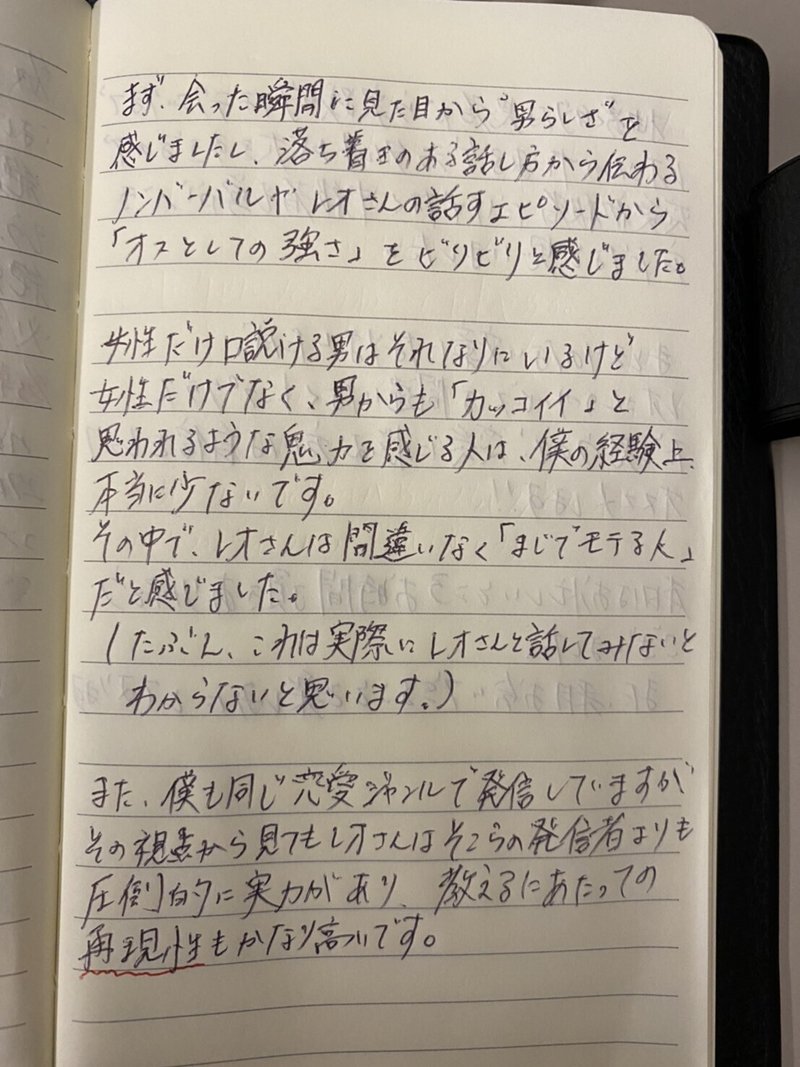 まず、会った瞬間に見た目から"男らしさ"を
感じましたし、落ち着きのある話し方から伝わる
ノンバーバルや レオさんの話すエピソードから
「オスとしての強さ」をビリビリと感じました。
女性だけ口説ける男はそれなりにいるけど
女性だけでなく、男からも「カッコイイ」と
思われるような魅力を感じる人は、僕の経験上、
本当に少ないです。
その中で、レオさんは間違いなく「まじでモテる人」
だと感じました。
(たぶん、これは実際にレオさんと話してみないと
わからないと思います。)
また、僕も同じ恋愛ジャンルで発信していますが
その視点から見てもレオさんはそこらの発信者よりも
圧倒的に実力があり、教えるにあたっての
再現性もかなり高いです。